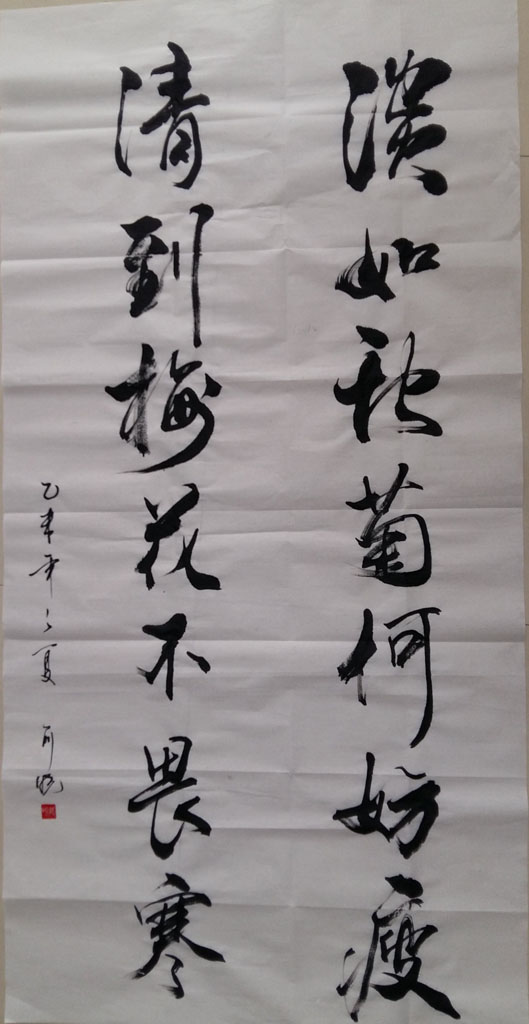 淡如秋菊何妨瘦
清到梅花不畏寒
乙未年之夏